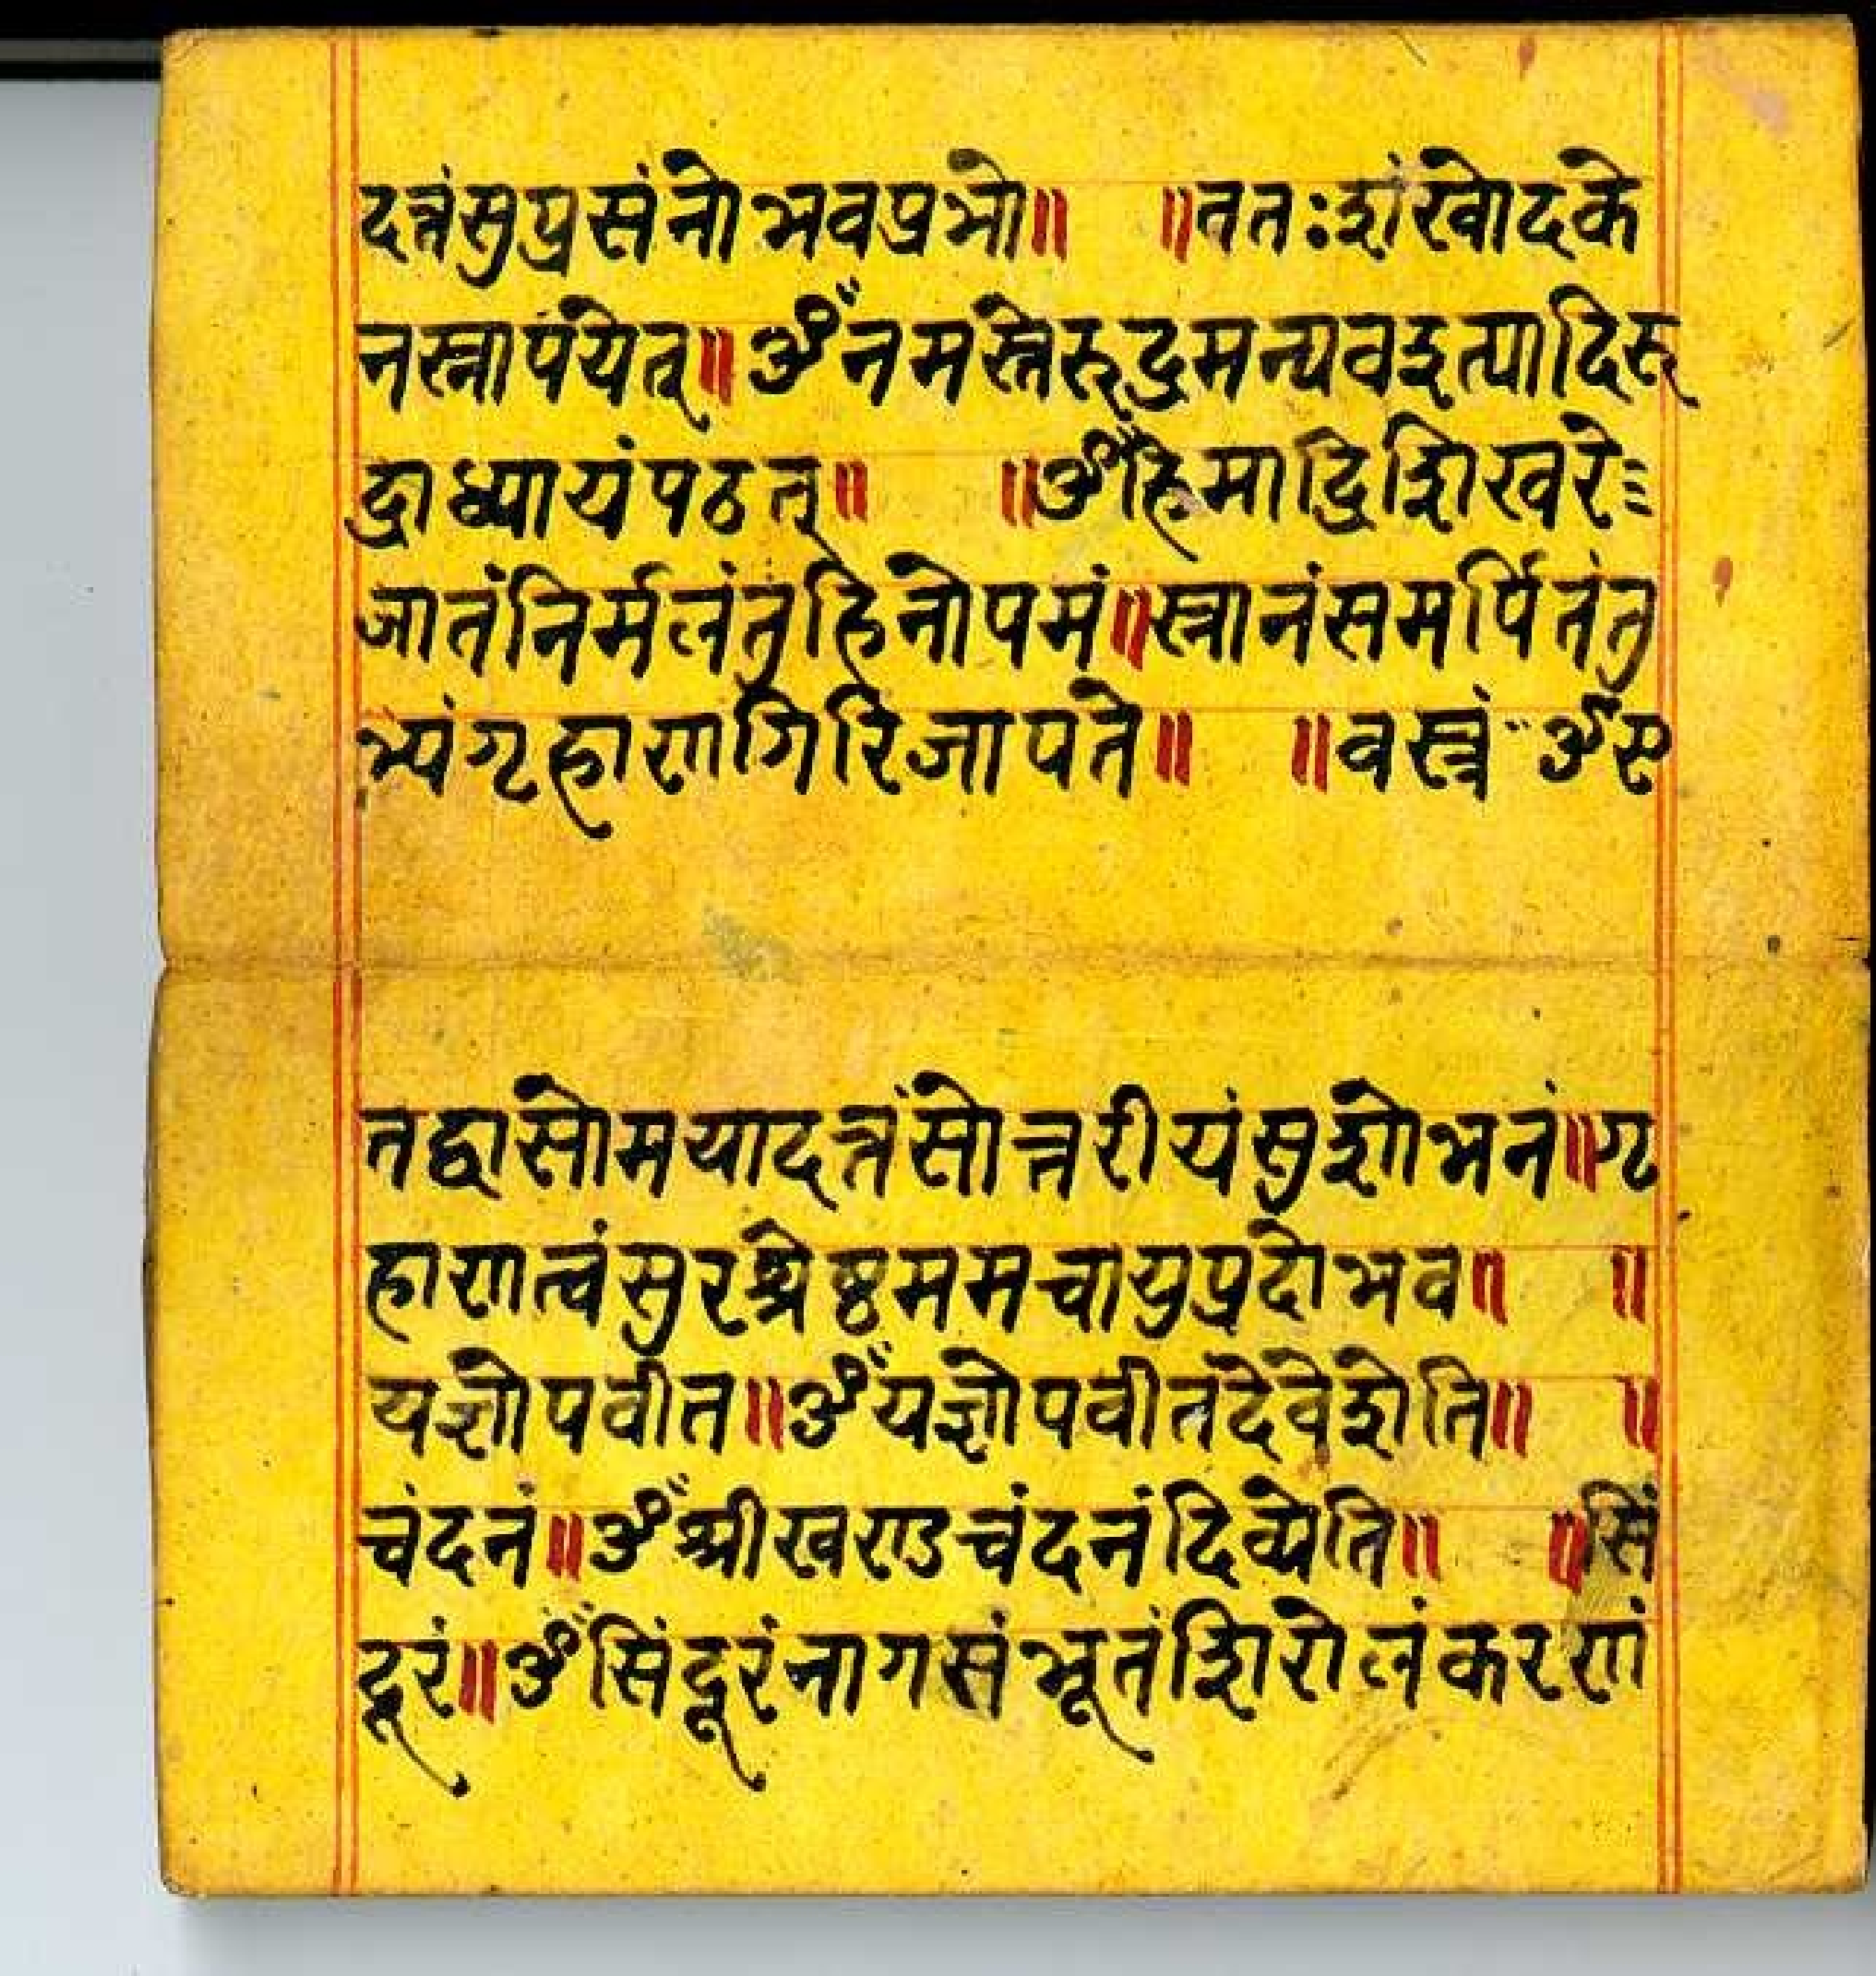 दत्तंसुप्रसंनोभवप्रभो॥ ॥ततःशंखोदके
नस्नापयेत्॥ॐनमस्तेरुद्रमन्यवइत्यादिरु
द्राध्यायंपठेत्॥ ॥ॐहिमाद्रिशिखरे
जातंनिर्मलंतुहिनोपमं॥स्नानंसमर्पितंतु
भ्यंगृहाणगिरिजापते॥ ॥वस्त्रं ॐए
तद्वासोमयादत्तंसोत्तरीयंसुशोभनं॥गृ
हाणत्वंसुरश्रेष्ठममचायुप्रदोभव॥ ॥
यज्ञोपवीत॥ॐयज्ञोपवीतदेवेशेति॥ ॥
चंदनं॥ॐश्रीखण्डचंदनंदिव्येति॥ ॥सिं
दूरं॥ॐसिंदूरंनागसंभूतंशिरोलंकरणं